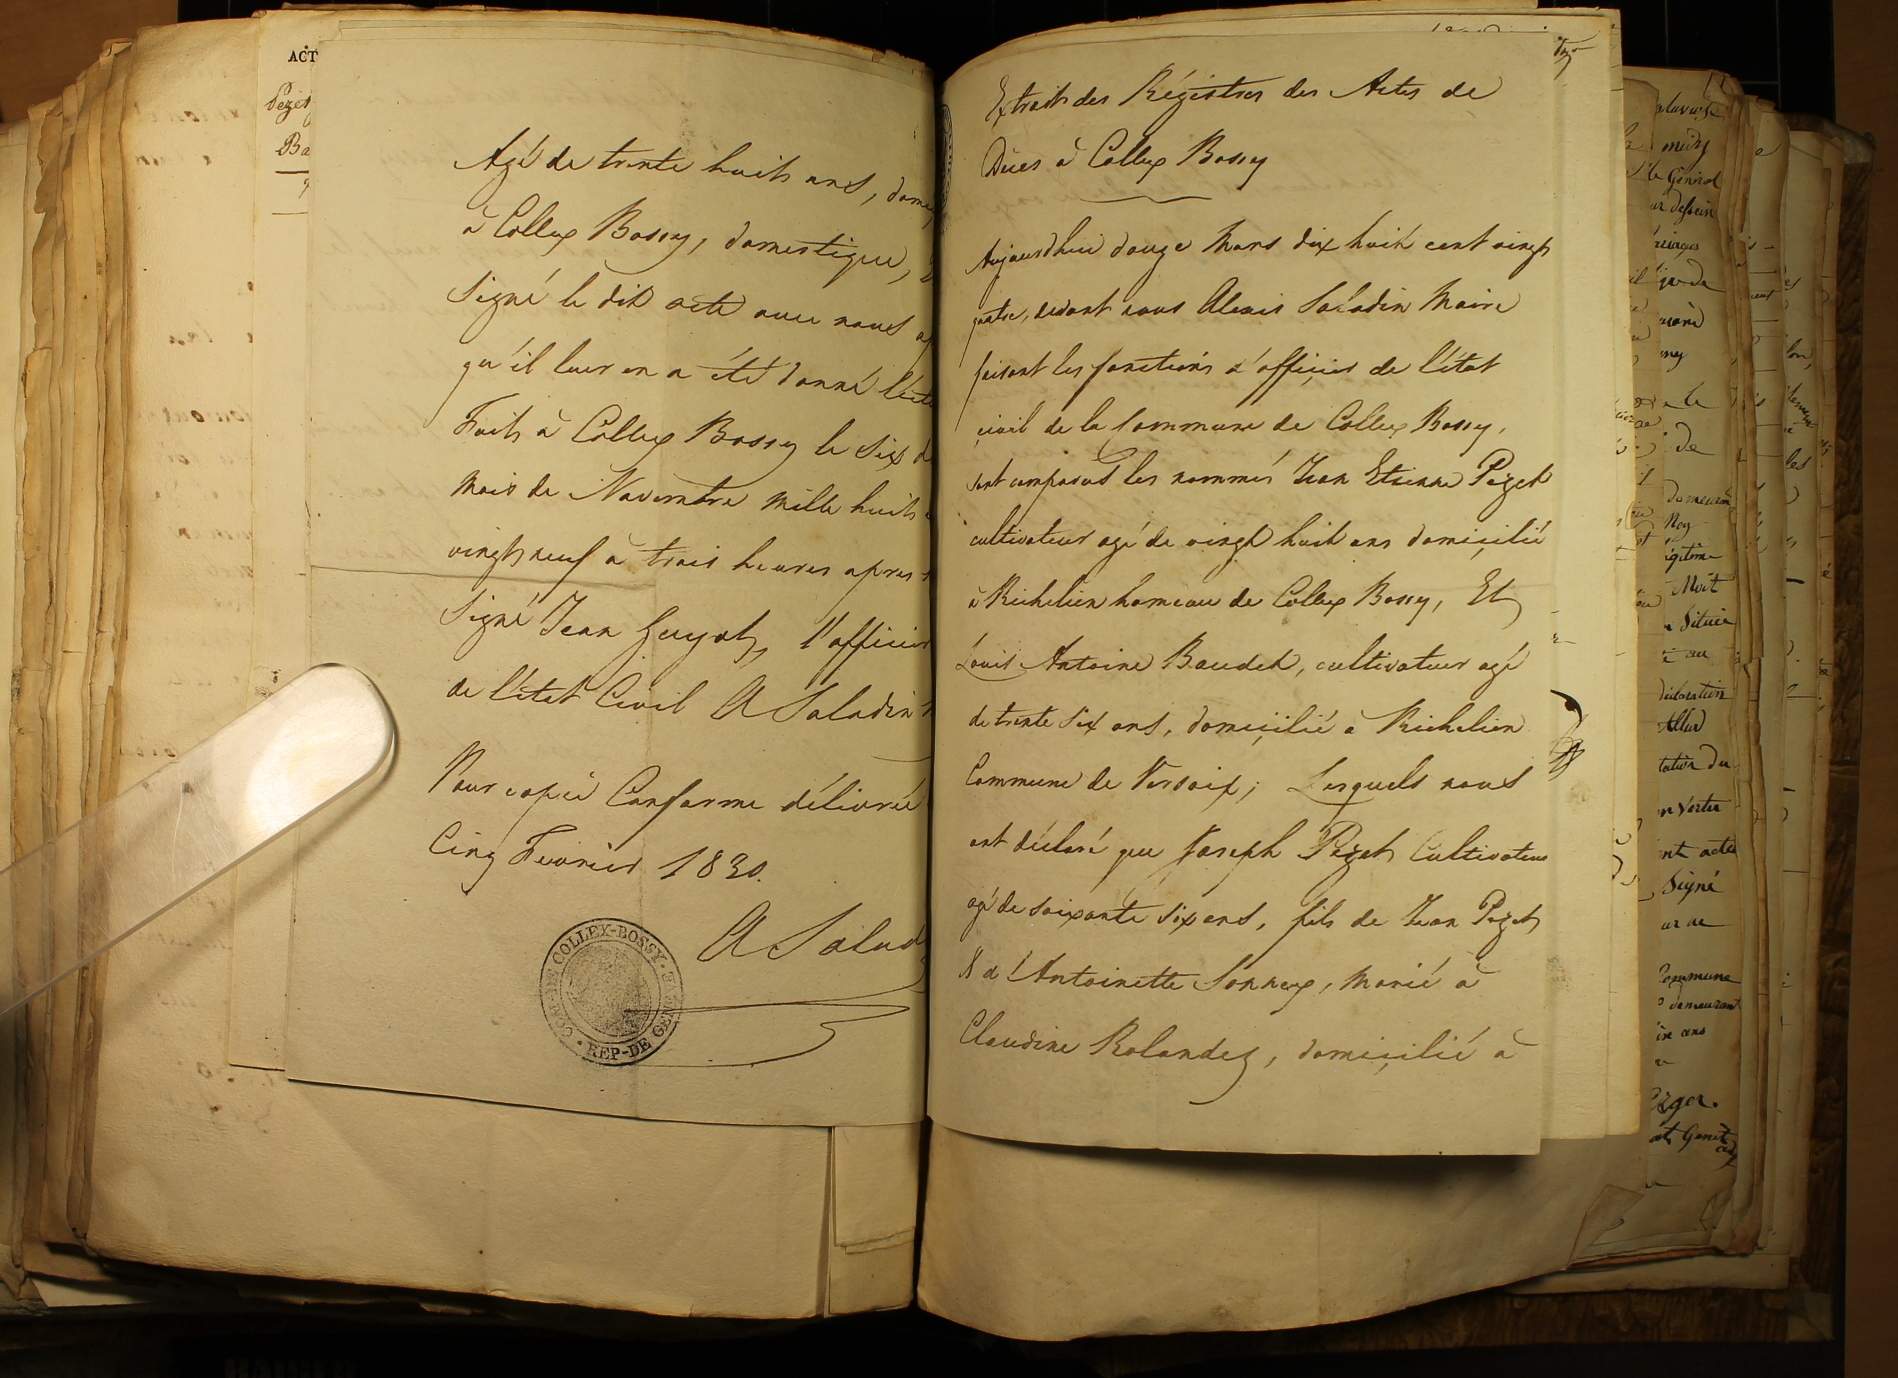 ACT
Pezet
Ba
Agé de trente huit ans, dom
à Collex Bossy, domestique,
Signé le dit acte avec nous a
qu'il leur en a été donné lect
Fait à Collex Bossy le Six d
Mois de Novembre mille huit
vingt neuf à trois heures apres
Signé Jean Guyot, l'officier
de l'état Civil A Saladin
Pour copie Conforme délivrée
Cinq Fevrier 1830.
A Salad
COM-DE COLLEX-BOSSY
REP-DE GEN
Extrait des Régistres des Actes de
Décès à Collex Bossy
Aujourdhui douze Mars dix huit cent vingt
quatre, devant nous Alexis Saladin Maire
faisant les fonctions d'officier de l'état
civil de la Commune de Collex Bossy,
sont comparus les nommés Jean Etienne Pezet
cultivateur agé de vingt huit ans domicilié
à Richelien hameau de Collex Bossy, Et
Louis Antoine Baudet, cultivateur agé
de trente Six ans, domicilié à Richelien
Commune de Versoix; Lesquels nous
ont déclaré que Joseph Pezet Cultivateur
agé de soixante six ans, fils de Jean Pezet
& d'Antoinette Sonnex, Marié à
Claudine Rolandez, domicilié à
le Général
de
égitime
Situèe
au
déclaration
tation du
nt acte
Signé
Commune
demeurant
ans